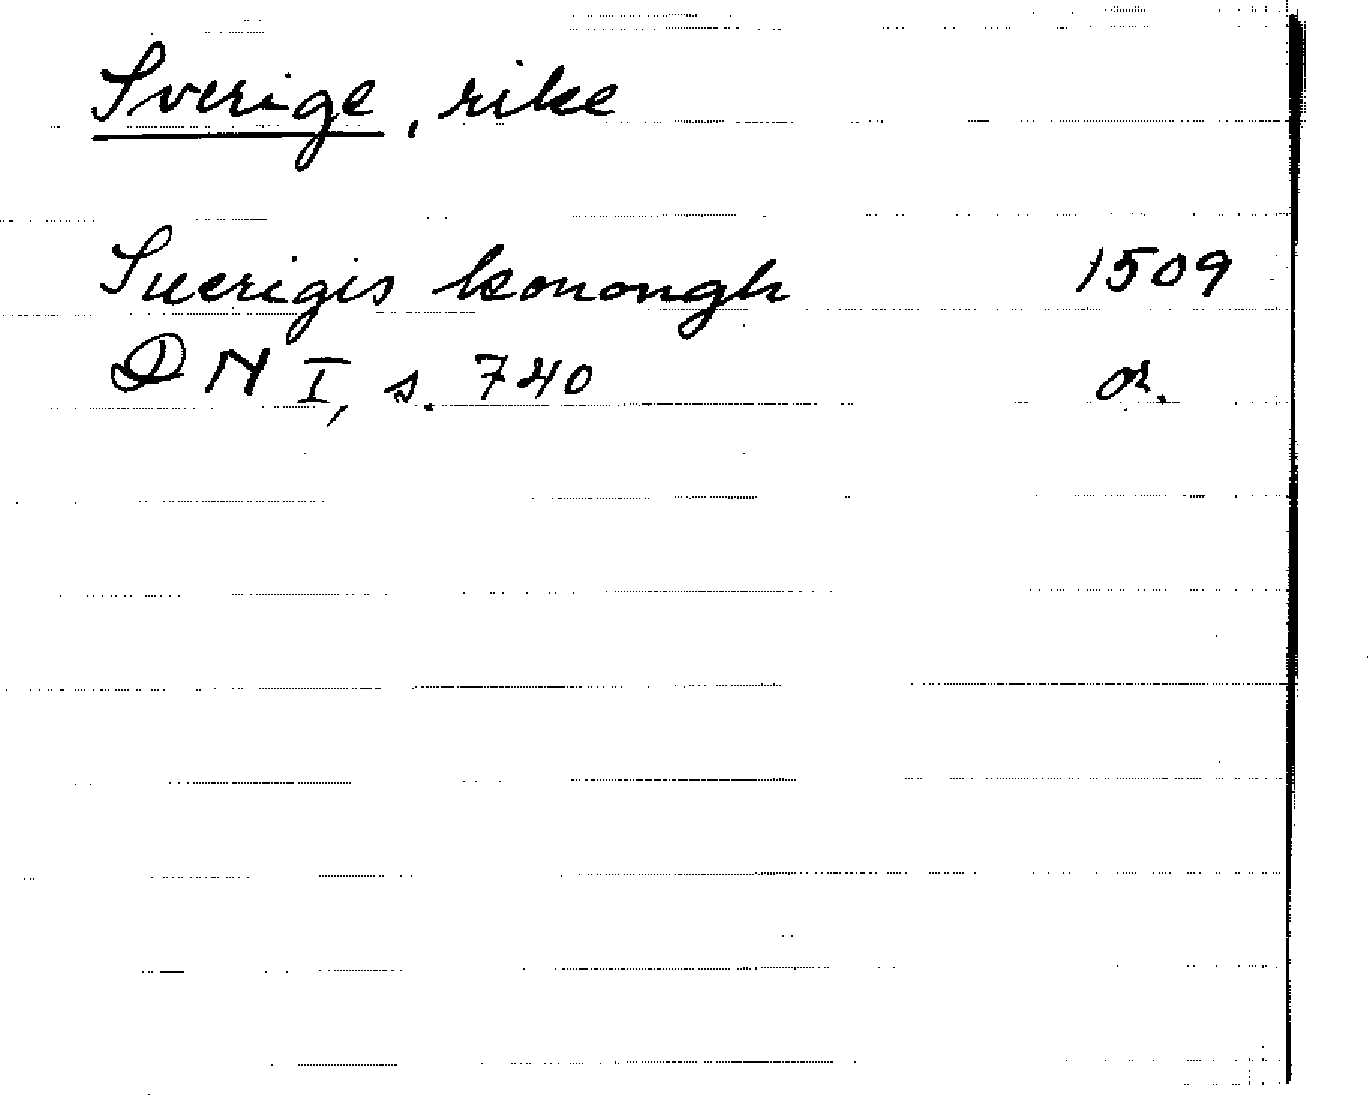 Sverige, rike
Suerigis konongh 1509
DN I, s. 740 or.